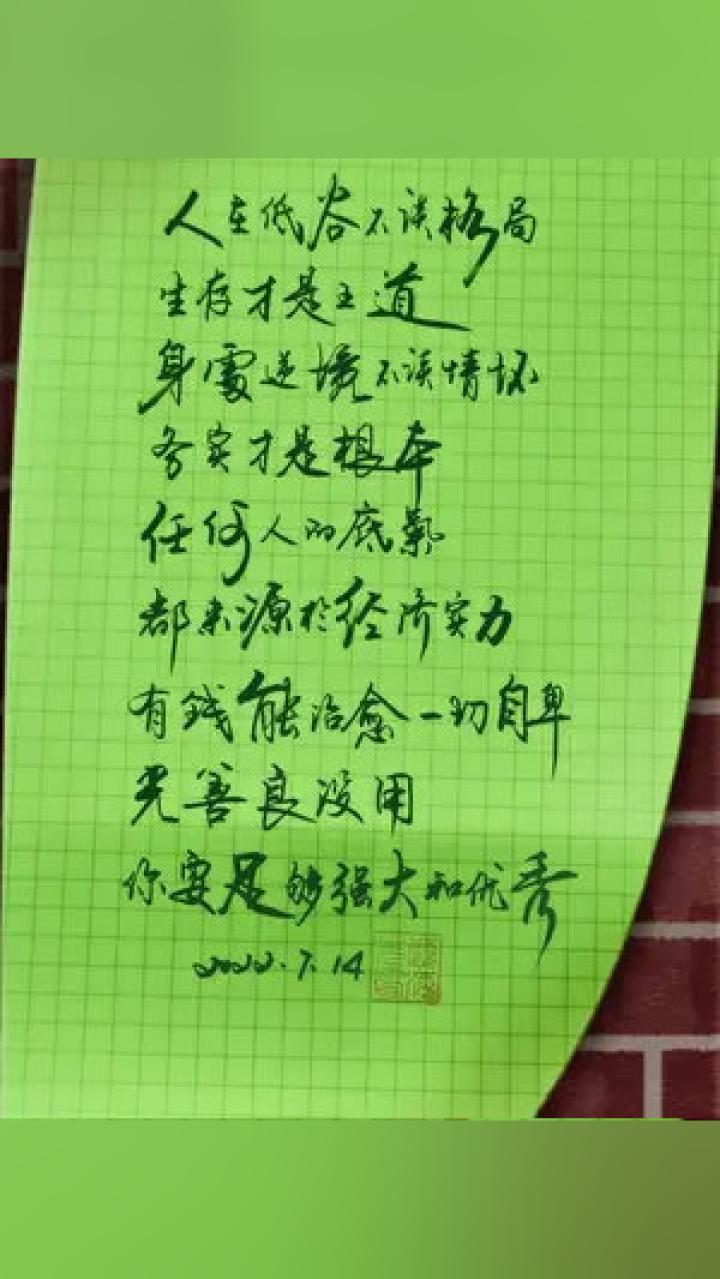 人在低谷不谈格局
生存才是王道
身处逆境不谈情怀
务实才是根本
任何人的底氣
都来源於经济实力
有錢能治愈一切自卑
光善良没用
你要足够强大和优秀
2022.7.14